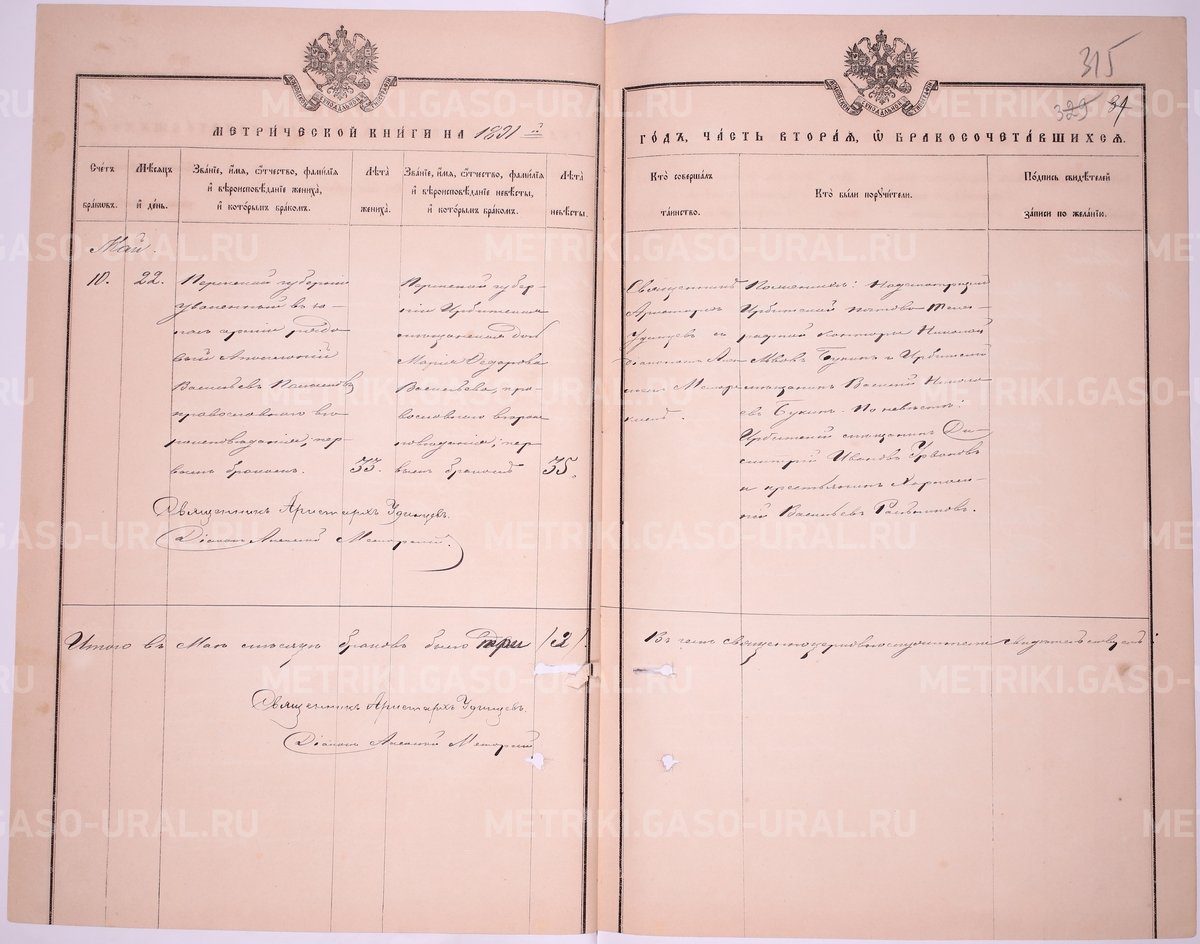 315
329 34
МЕТРИЧЕСКОЙ КНИГИ НА 1891й
ГОДЪ, ЧАСТЬ ВТОРАЯ, Ѡ БРАКОСОЧЕТАВШИХСЯ.
Счетъ браковъ.
Мѣсяцъ и день.
Званіе, имя, отчество, фамилія и вѣроисповѣданіе жениха, и которымъ бракомъ.
Лѣта жениха.
Званіе, имя, отчество, фамилія и вѣроисповѣданіе невѣсты, и которымъ бракомъ.
Лѣта невѣсты.
Кто совершалъ таинство.
Кто были поручители.
Подпись свидѣтелей записи по желанію.
Май.
10.
22.
Пермской губерніи
уволенный въ за-
пасъ арміи рядо-
вой
Васильевъ
православнаго вѣ-
роисповѣданія, пер-
вымъ бракомъ.
33.
Пермской губер-
ніи Ирбитская
мѣщанская доч
Марія Ѳедорова
Васильева, пра-
вославнаго вѣроис-
повѣданія, пер-
вымъ бракомъ
35.
Священникъ
Аристархъ
Удинцевъ съ
діакономъ Але-
По женихѣ:
Ирбитской почтово-теле-
графной конторы Николай
Букинъ и Ирбитскій
мѣщанинъ Василій Никола-
евъ Букинъ. По невѣстѣ:
Ирбитскій мѣщанинъ Ди-
митрій Ивановъ
и крестьянинъ
Васильевъ
Священникъ Аристархъ Удинцевъ.
Діаконъ Алексій
Итого въ Маѣ мѣсяцѣ браковъ было три /3/.
Въ чемъ священноцерковнослужители свидѣтельствуемъ:
Священникъ Аристархъ Удинцевъ.
Діаконъ Алексій
METRIKI.GASO-URAL.RU